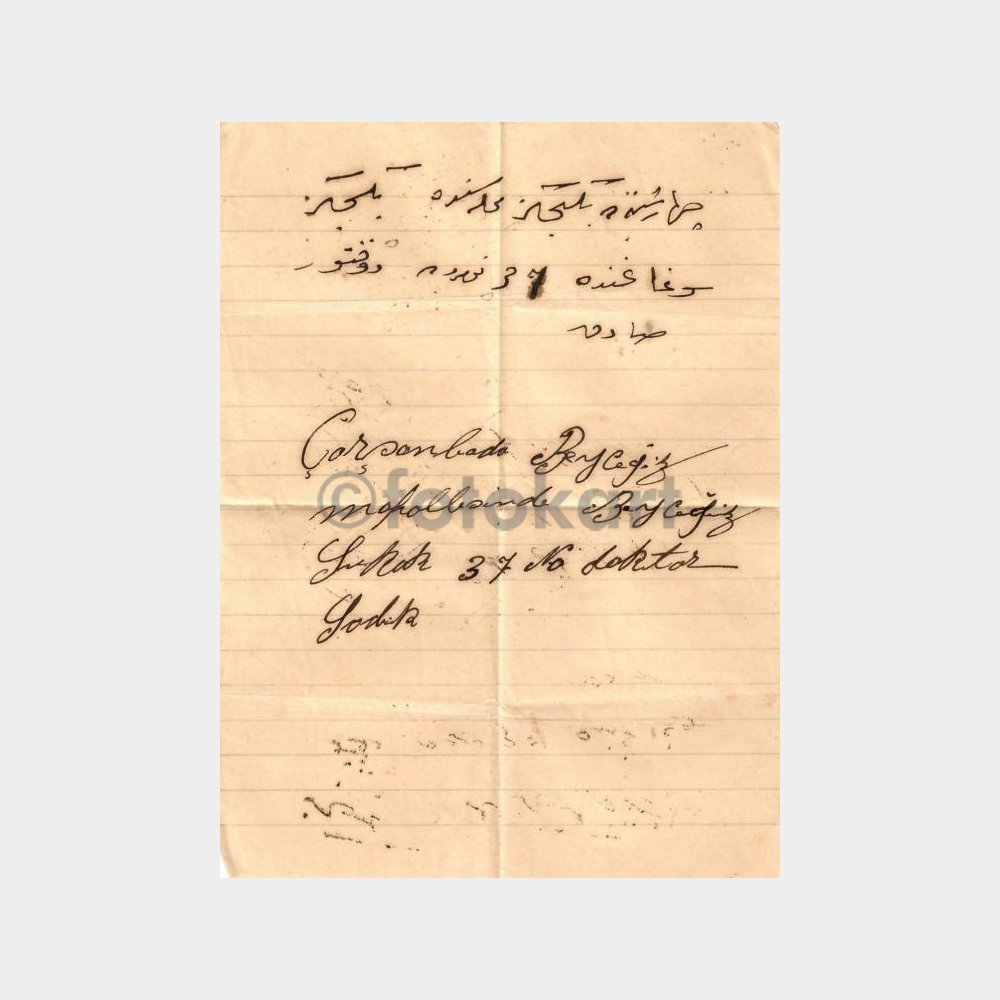 چهارشنبه ده بكجكز محله سنده بكجكز
سوقاغنده 37 نومروده دوقتور
صادق
Çarşanbada Beyceğiz
mahallesinde Beyceğiz
Sokak 37 No doktor
Sadık
©fotokart